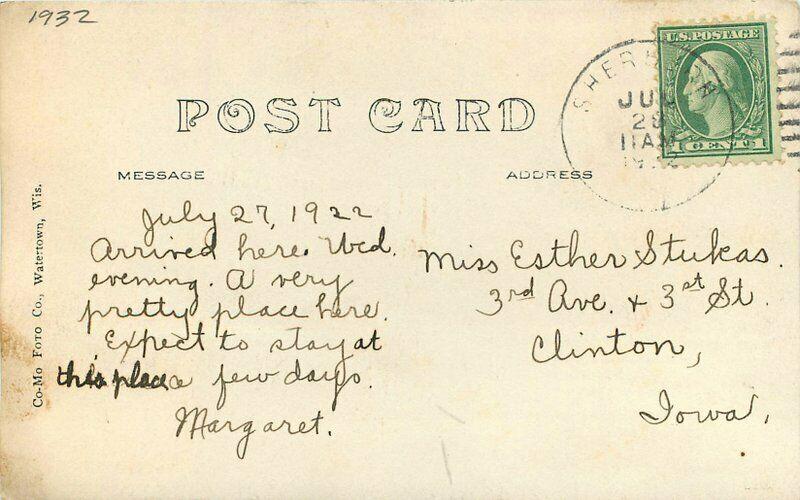 1932
POST CARD
U.S. POSTAGE
1 CENT 1
JUL
28
11 AM
MESSAGE
ADDRESS
July 27, 1922
Arrived here Wed.
evening. A very
pretty place here.
Expect to stay at
this place a few days.
Margaret.
Miss Esther Stukas.
3rd Ave. & 3rd St.
Clinton,
Iowa,
Co-Mo Foto Co., Watertown, Wis.